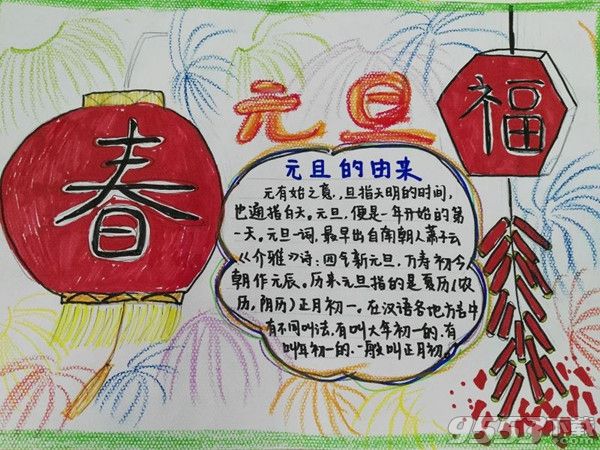 元旦
春
福
元旦的由来
元有始之意，旦指天明的时间，
也通指白天。元旦，便是一年开始的第
一天。元旦一词，最早出自南朝人萧子云
《介雅》诗：四气新元旦，万寿初今
朝作元辰。历来元旦指的是夏历（农
历，阴历）正月初一。在汉语各地方言中
有不同叫法，有叫大年初一的，有
叫年初一的、一般叫正月初一。
9553下载